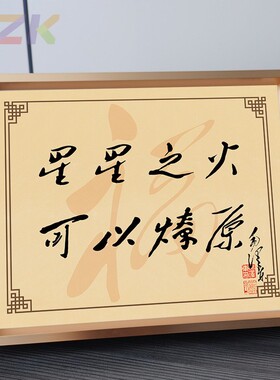 ZK
星星之火
可以燎原
毛泽东
福